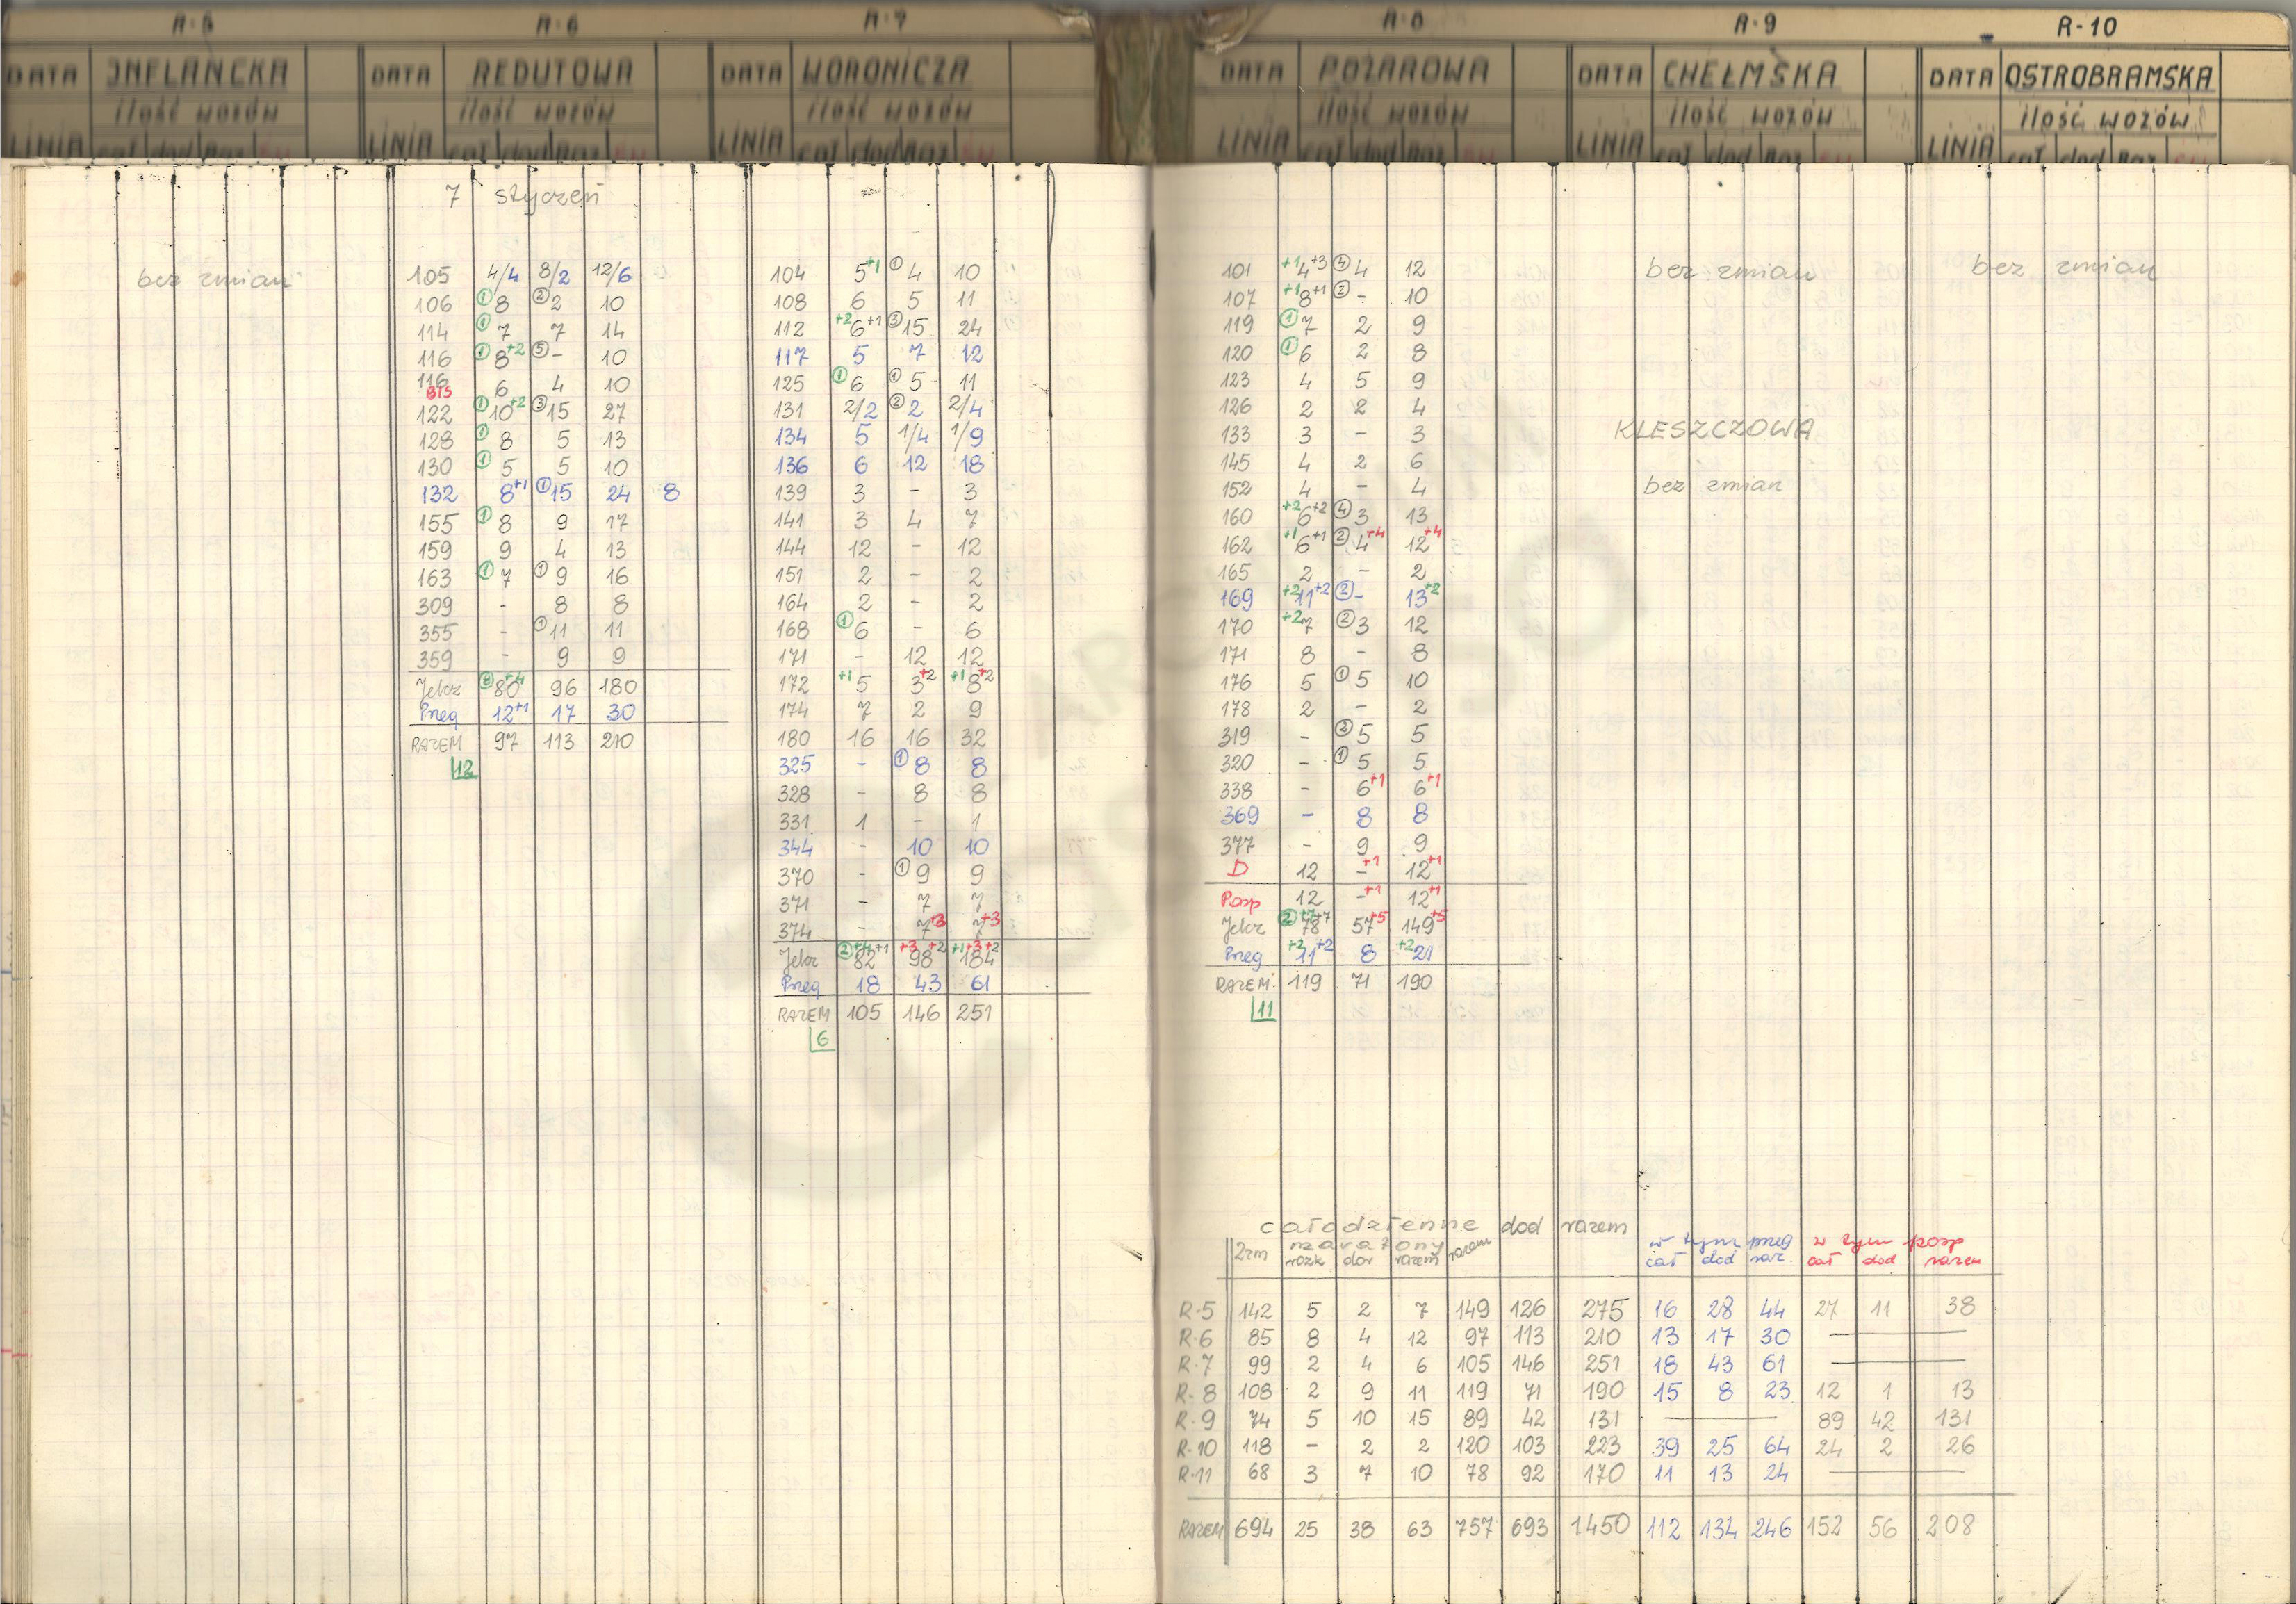 R-5
DATA INFLANCKA
ilość wozów
LINIA cał dod Raz
R-6
DATA REDUTOWA
ilość wozów
LINIA cał dod Raz
R-7
DATA WORONICZA
ilość wozów
LINIA cał dod Raz
R-8
DATA POŻAROWA
ilość wozów
LINIA cał dod Raz
R-9
DATA CHEŁMSKA
ilość wozów
LINIA cał dod Raz
R-10
DATA OSTROBRAMSKA
ilość wozów
LINIA cał dod Raz
7 styczeń
bez zmian
105 4/4 8/2 12/6
106 ① 8 ② 2 10
114 ① 7 7 14
116 ① 8 +2 ⑤ - 10
116 BIS 6 4 10
122 ① 10 +2 ③ 15 27
128 ① 8 5 13
130 ① 5 5 10
132 8 +1 ① 15 24 8
155 ① 8 9 17
159 9 4 13
163 ① 7 ① 9 16
309 - 8 8
355 - ① 11 11
359 - 9 9
Jelcz ⑧ 80 +4 96 180
Preg 12 +1 17 30
RAZEM 97 113 210
12
104 5 +1 ① 4 10
108 6 5 11
112 +2 6 +1 ③ 15 24
117 5 7 12
125 ① 6 ① 5 11
131 2/2 ② 2 2/4
134 5 1/4 1/9
136 6 12 18
139 3 - 3
141 3 4 7
144 12 - 12
151 2 - 2
164 2 - 2
168 ① 6 - 6
171 - 12 12
172 +1 5 3 +2 +1 8 +2
174 7 2 9
180 16 16 32
325 - ① 8 8
328 - 8 8
331 1 - 1
344 - 10 10
370 - ① 9 9
371 - 7 7
374 - 7 +3 7 +3
Jelcz ② +4 +1 82 +3 +2 98 +1 +3 +2 184
Preg 18 43 61
RAZEM 105 146 251
6
101 +1 4 +3 ④ 4 12
107 +1 8 +1 ② - 10
119 ① 7 2 9
120 ① 6 2 8
123 4 5 9
126 2 2 4
133 3 - 3
145 4 2 6
152 4 - 4
160 +2 6 +2 ④ 3 13
162 +1 6 +1 ② 4 +4 12 +4
165 2 - 2
169 +2 11 +2 ② - 13 +2
170 +2 7 ② 3 12
171 8 - 8
176 5 ① 5 10
178 2 - 2
319 - ② 5 5
320 - ① 5 5
338 - 6 +1 6 +1
369 - 8 8
377 - 9 9
D 12 - +1 12 +1
Posp 12 - +1 12 +1
Jelcz ② +7 +7 78 57 +5 149 +5
Preg +2 11 +2 8 +2 21
RAZEM 119 71 190
11
bez zmian
KLESZCZOWA
bez zmian
bez zmian
całodzienne dod razem
2zm maratony razem w tym preg w tym posp
rozk dor razem cał dod raz. cał dod razem
R-5 142 5 2 7 149 126 275 16 28 44 27 11 38
R-6 85 8 4 12 97 113 210 13 17 30 —
R-7 99 2 4 6 105 146 251 18 43 61 —
R-8 108 2 9 11 119 71 190 15 8 23 12 1 13
R-9 74 5 10 15 89 42 131 — 89 42 131
R-10 118 - 2 2 120 103 223 39 25 64 24 2 26
R-11 68 3 7 10 78 92 170 11 13 24 —
RAZEM 694 25 38 63 757 693 1450 112 134 246 152 56 208